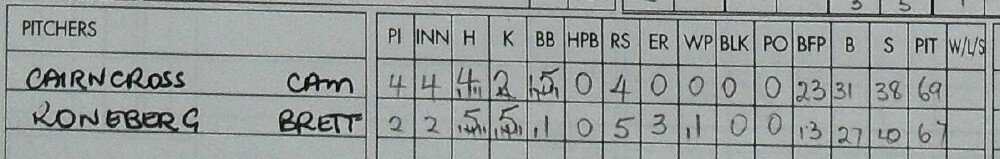 PITCHERS PI INN H K BB HPB RS ER WP BLK PO BFP B S PIT W/L/S
CAIRNCROSS CAM 4 4 4 2 5 0 4 0 0 0 0 23 31 38 69
RONEBERG BRETT 2 2 5 5 1 0 5 3 1 0 0 13 27 40 67